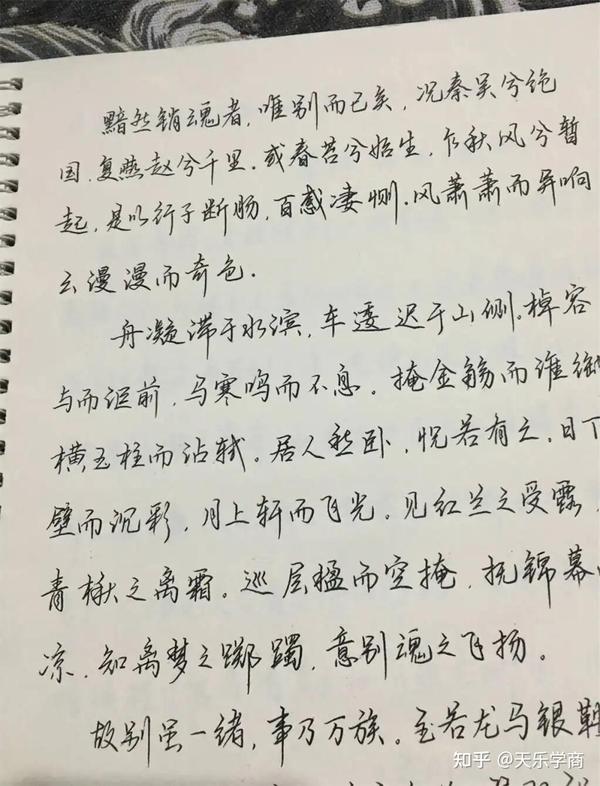 黯然销魂者，唯别而已矣，况秦吴兮绝
国，复燕赵兮千里。或春苔兮始生，乍秋风兮暂
起，是以行子断肠，百感凄恻。风萧萧而异响
云漫漫而奇色。
舟凝滞于水滨，车逶迟于山侧。棹容
与而讵前，马寒鸣而不息。掩金觞而谁御
横玉柱而沾轼。居人愁卧，怳若有亡，日下
壁而沉彩，月上轩而飞光，见红兰之受露
青楸之离霜。巡层楹而空掩，抚锦幕
凉，知离梦之踯躅，意别魂之飞扬。
故别虽一绪，事乃万族。至若龙马银鞍
知乎 @天乐学商